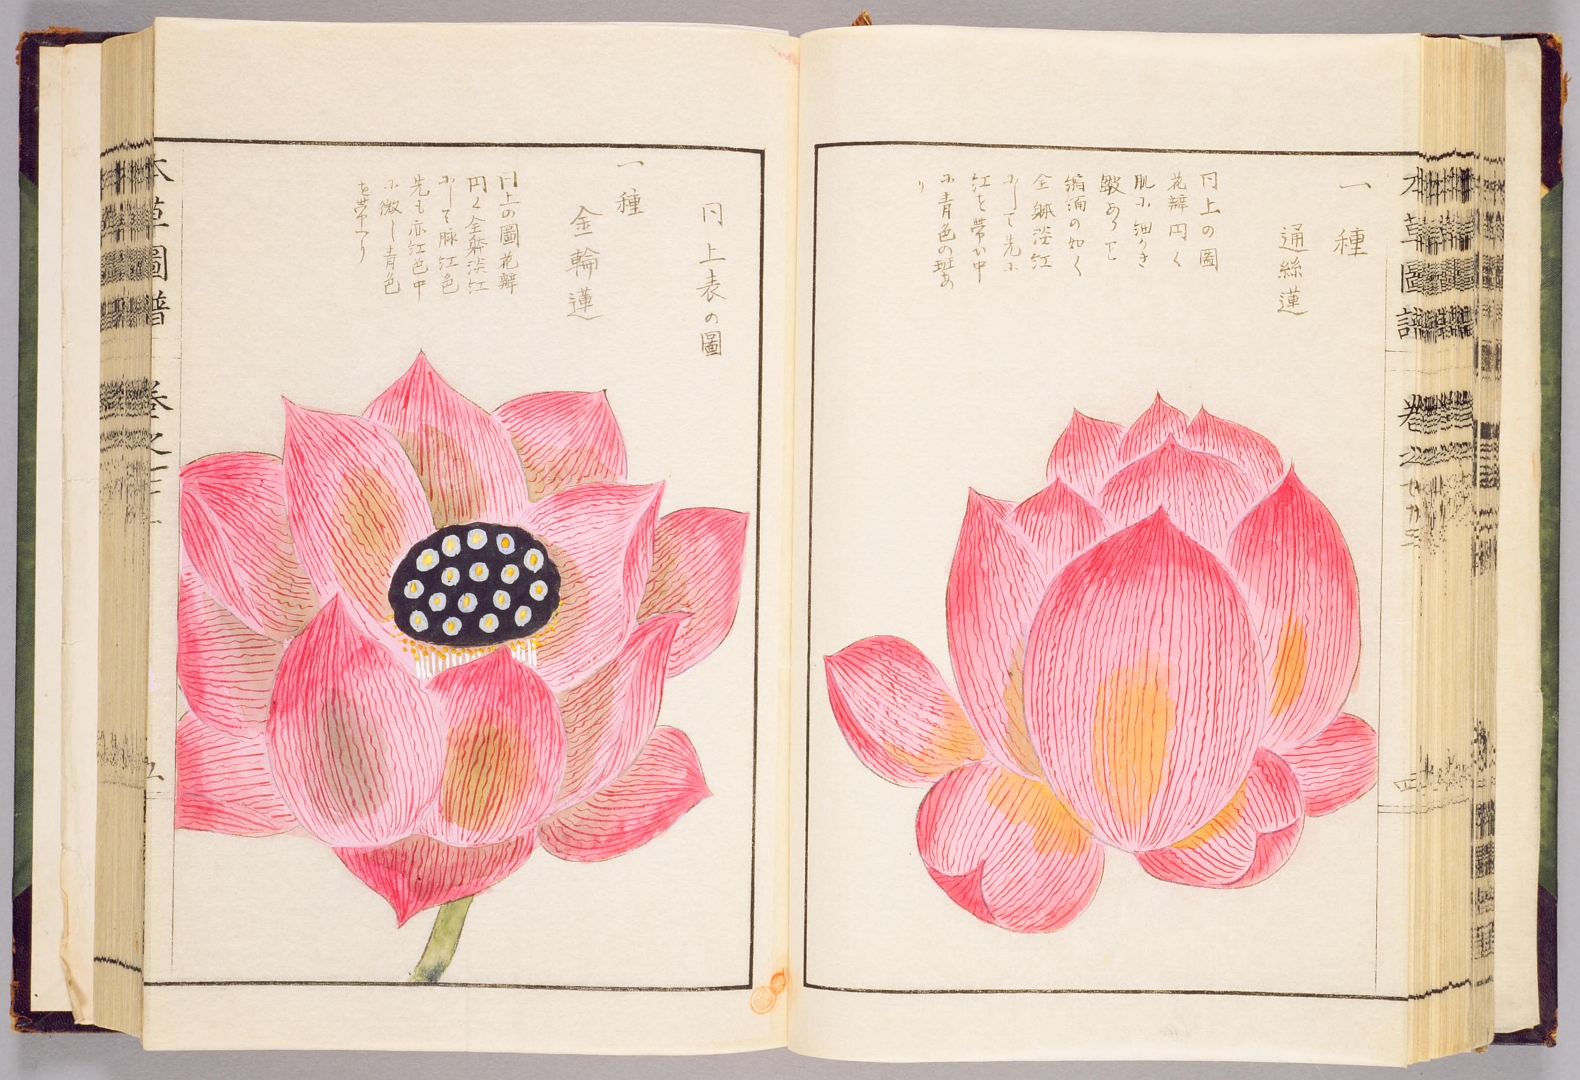 本草圖譜 卷之
一種
通絲蓮
同上の圖
花瓣円く
肌に細かき
皺ありて
縮緬の如く
全躰淡紅
にして先に
紅を帯ひ中
に青色の斑あ
り
四
同上表の圖
一種
金輪蓮
同上の圖花瓣
円く全躰淡紅
にして脈紅色
先も亦紅色中
に微し青色
を帯へり
本草圖譜 卷之
五